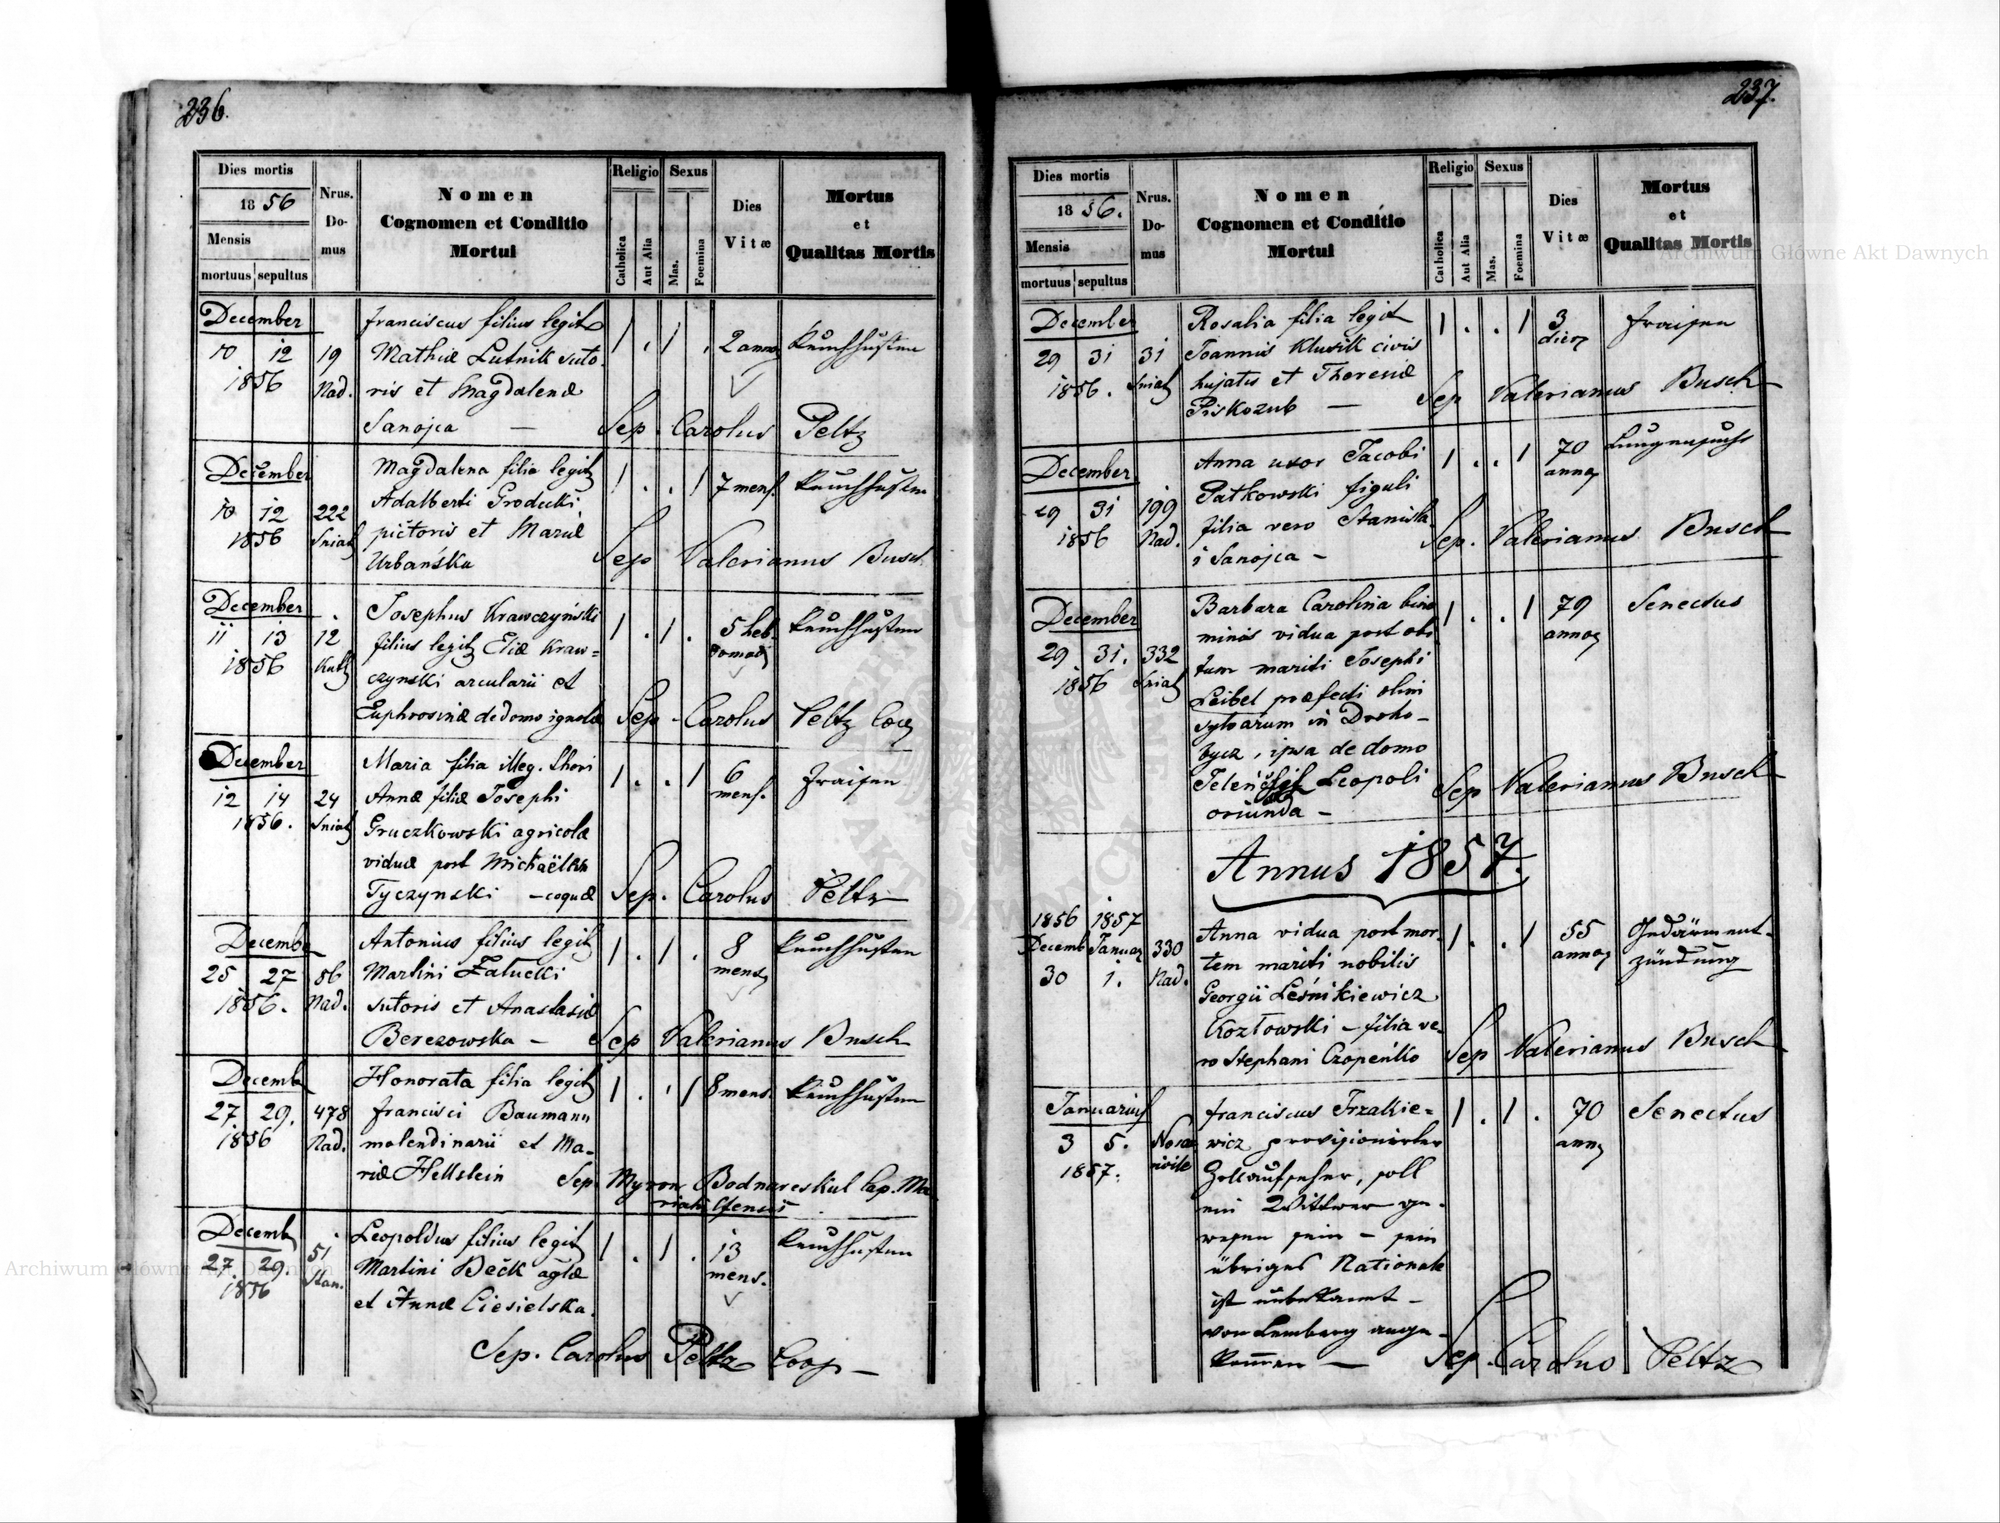 236.
Dies mortis
1856
Mensis
mortuus sepultus
Nrus.
Do-
mus
Nomen
Cognomen et Conditio
Mortui
Religio
Catholica
Aut Alia
Sexus
Mas.
Foemina
Dies
Vitæ
Mortus
et
Qualitas Mortis
December
10 12
1856
19
Nad.
Franciscus filius legit
Mathiæ Lutnik suto-
ris et Magdalenæ
Sanojca —
1 . 1 .
2 annor
Keuchhusten
Sep. Carolus Peltz
December
10 12
1856
222
Sniat
Magdalena filia legit
Adalberti Grodecki
pictoris et Mariæ
Urbańska
1 . . 1
7 mens.
Keuchhusten
Sep Valerianus Busch
December
11 13
1856
12
Kutt
Josephus Krawczyński
filius legit Eliæ Kraw=
czynski arcularii et
Euphrosinæ de domo ignotæ
1 . 1 .
5 heb-
domad
Keuchhusten
Sep. Carolus Peltz Coop
December
12 14
1856.
24
Sniat
Maria filia illeg. thori
Annæ filiæ Josephi
Gruczkowski agricolæ
viduæ post Michaëlem
Tyczynski — coquæ
1 . . 1
6
mens.
Fraisen
Sep. Carolus Peltz
Decemb
25 27
1856.
86
Nad.
Antonius filius legit
Martini Załucki
sutoris et Anastasiæ
Berezowska —
1 . 1 .
8
mens
Keuchhusten
Sep Valerianus Busch
Decemb
27 29.
1856
478
Nad.
Honorata filia legit
Francisci Baumann
molendinarii et Ma-
riæ Hellstein
1 . . 1
8 mens.
Keuchhusten
Sep. Myron Bodnareskul Cap. Ma-
riahilfensis
Decemb
27 29
1856
51
Stan.
Leopoldus filius legit
Martini Beck aglæ
et Annæ Ciesielska.
1 . 1 .
13
mens.
Keuchhusten
Sep. Carolus Peltz Coop —
237.
Dies mortis
1856.
Mensis
mortuus sepultus
Nrus.
Do-
mus
Nomen
Cognomen et Conditio
Mortui
Religio
Catholica
Aut Alia
Sexus
Mas.
Foemina
Dies
Vitæ
Mortus
et
Qualitas Mortis
December
29 31
1856.
31
Sniat
Rosalia filia legit
Joannis Klusik civis
hujatis et Theresiæ
Piskozub —
1 . . 1
3
dier
Fraisen
Sep Valerianus Busch
December
29 31
1856
199
Nad.
Anna uxor Jacobi
Patkowski figuli
filia vero Stanisla-
i Sanojca —
1 . . 1
70
annor
Lungensucht
Sep. Valerianus Busch
December
29 31.
1856
332
Sniat
Barbara Carolina bino
minis vidua post obi
tum mariti Josephi
Leibel præfecti olim
sylvarum in Droho-
bycz, ipsa de domo
Leopoli
oriunda —
1 . . 1
79
annor
Senectus
Sep Valerianus Busch
Annus 1857.
1856 1857
Decemb Januar
30 1.
330
Nad.
Anna vidua post mor-
tem mariti nobilis
Georgii Leśnikiewicz
Kozłowski — filia ve-
ro Stephani Czopeńko
1 . . 1
55
annor
Gedärment-
zündung
Sep Valerianus Busch
Januarius
3 5.
1857.
Franciscus Trzaskie=
wicz provisionirter
Zollaufseher, soll
ein Wittwer ge-
wesen sein — sein
übriges Nationale
ist unbekannt —
von Lemberg ange-
kommen —
1 . 1 .
70
ann
Senectus
Sep. Carolus Peltz
Archiwum Główne Akt Dawnych
Archiwum Główne Akt Dawnych
ARCHIWUM GŁÓWNE AKT DAWNYCH